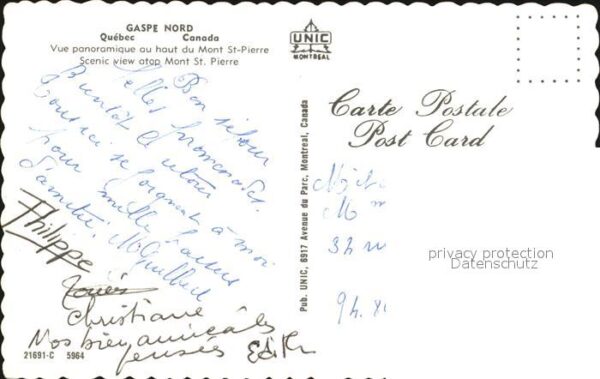 GASPE NORD
Québec Canada
Vue panoramique au haut du Mont St-Pierre
Scenic view atop Mont St. Pierre
UNIC
MONTREAL
Carte Postale
Post Card
Pub. UNIC, 6917 Avenue du Parc, Montreal, Canada
Bon séjour
belles promenades.
Bientôt le retour
Tous ici se joignent à moi
pour mille
d'amitié.
Philippe
Christiane
Nos bien amicales
pensées Edith
21691-C 5964
32
94.
privacy protection
Datenschutz